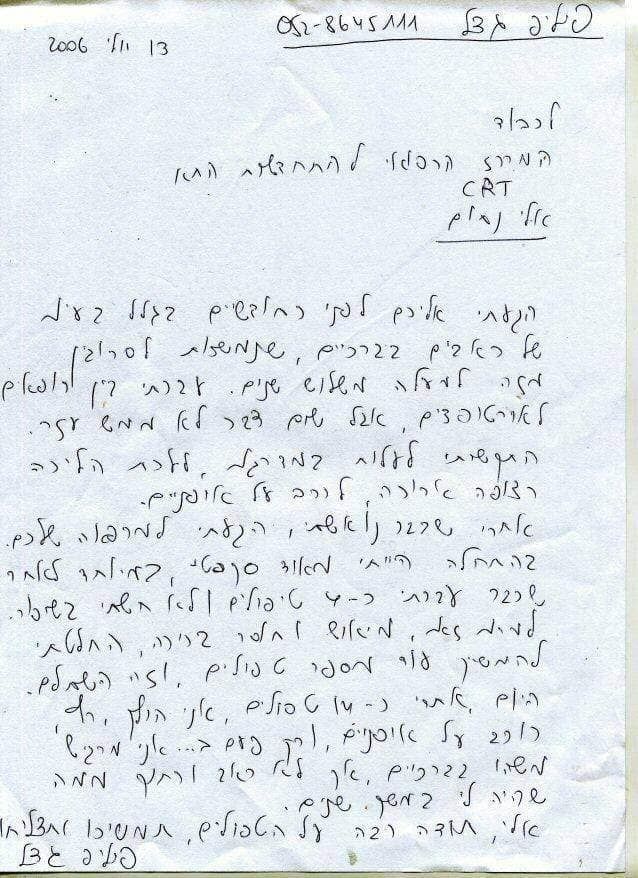 פיליפ גצל 052-8645111
13 יולי 2006
לכבוד
המרכז הרפואי להתחדשות התא
CRT
אלי נחום
הגעתי אליכם לפני כחודשיים בגלל בעיות
של כאבים בברכיים, שנמשכות לסרוגין
מזה למעלה משלוש שנים. עברתי בין רופאים
לאורטופדים, אבל שום דבר לא ממש עזר.
התקשיתי לעלות במדרגות, ללכת הליכה
רצופה ארוכה, לרכב על אופניים.
אחרי שכבר נואשתי, הגעתי למרפאה שלכם.
בהתחלה הייתי מאוד סקפטי, במיוחד לאחר
שכבר עברתי כ-4 טיפולים ולא חשתי בשיפור.
למרות זאת, מיאוש וחוסר ברירה, החלטתי
להמשיך עוד מספר טפולים, וזה השתלם.
היום, אחרי כ-14 טפולים, אני הולך, רץ,
רוכב על אופניים, ורק פעם ב... אני מרגיש
משהו בברכיים, אך לא כאב ורחוק ממה
שהיה לי במשך שנים.
אלי, תודה רבה על הטפולים, תמשיכו ותצליחו
פיליפ גצל